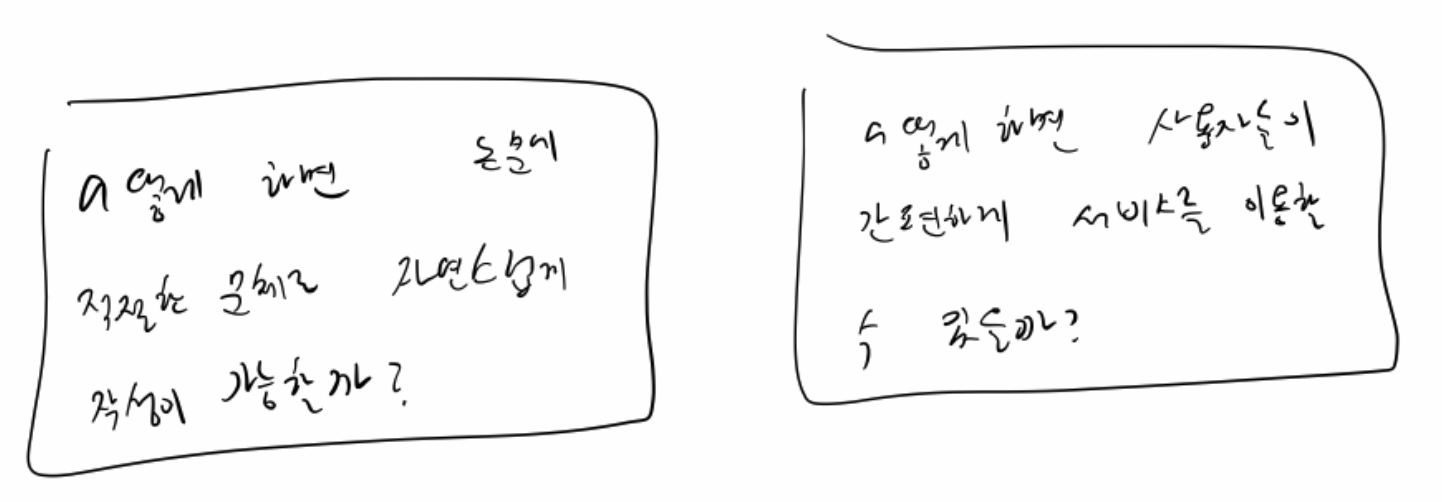 어떻게 하면 논문에
적절한 문체로 자연스럽게
작성이 가능할까?
어떻게 하면 사용자들이
간편하게 서비스를 이용할
수 있을까?